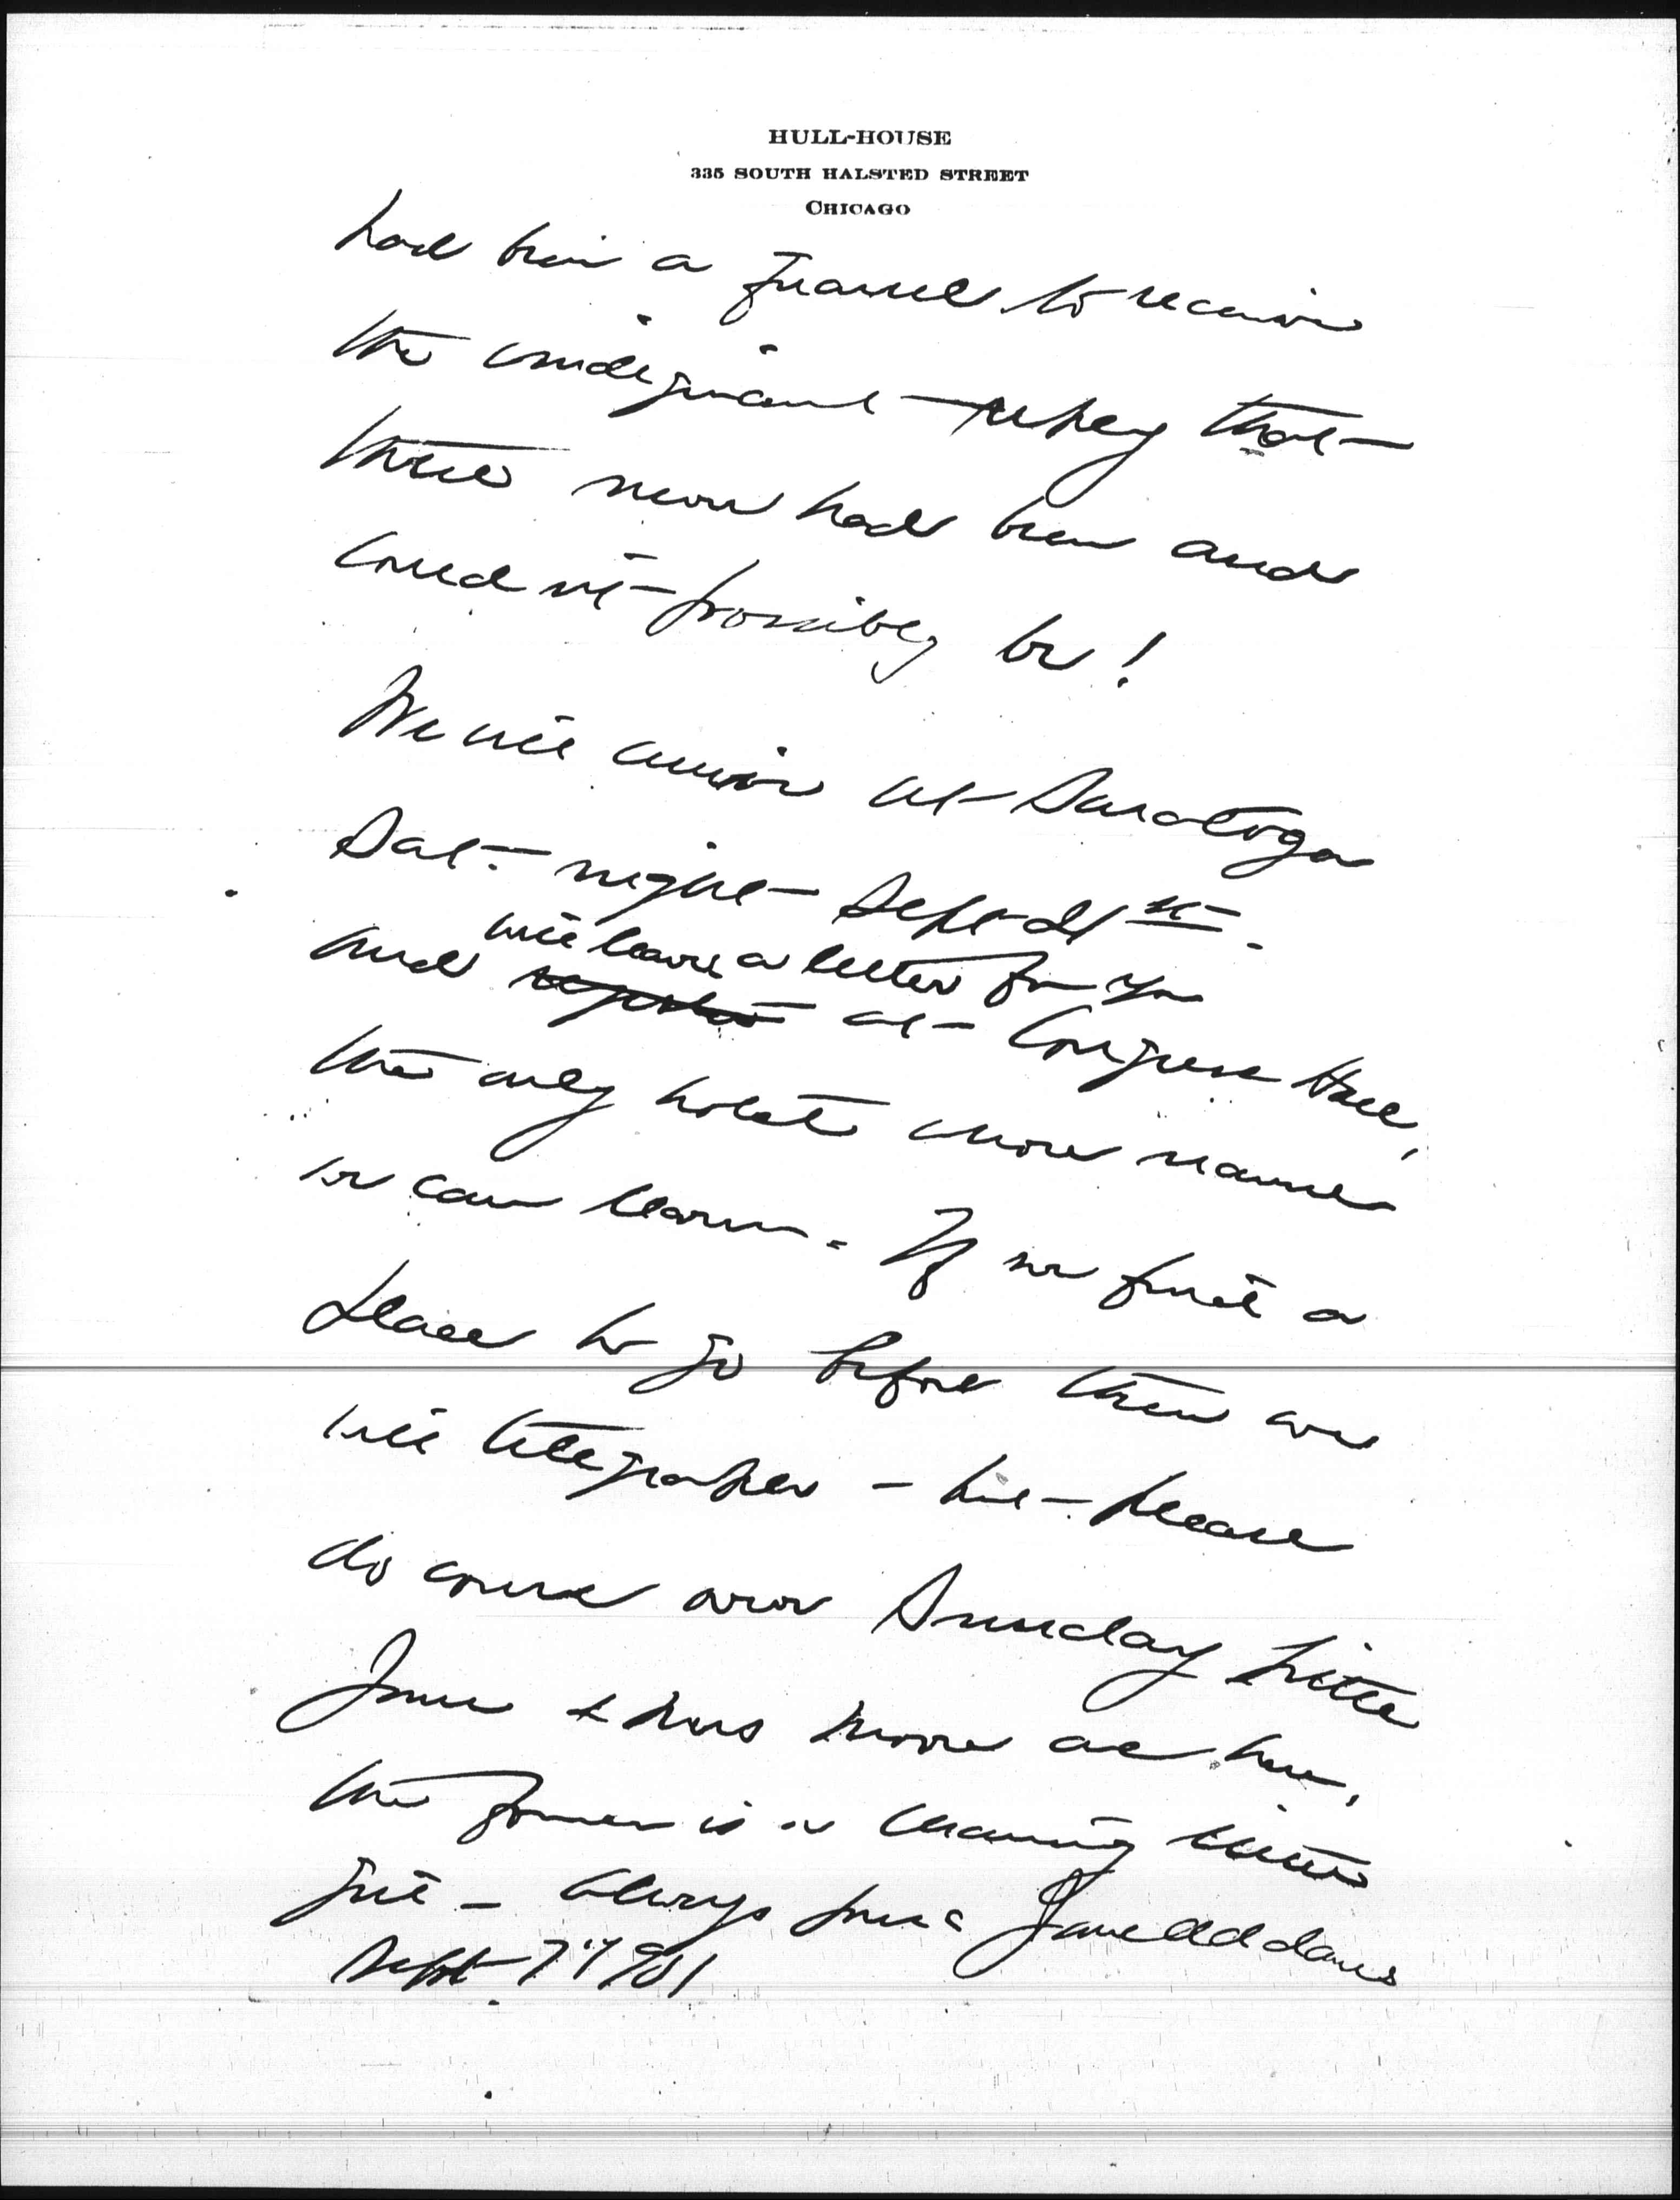 HULL-HOUSE
335 SOUTH HALSTED STREET
CHICAGO
had been a quarrel to receive
the indignant reply that
there never had been and
could n't possibly be!
We will arrive at Saratoga
Sat. night Sept 21st.
will leave a letter for you
and at Congress Hall,
the only hotel whose name
we can learn. If we find a
place to go before then we
will telegraph - but please
do come over Sunday little
& Mrs are here,
the former is a charming little
girl - Always yours Jane Addams
Sept. 7" 1901